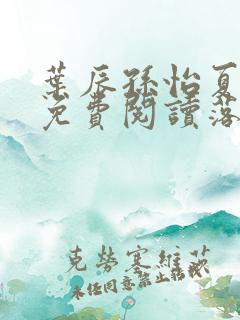 葉辰孫怡夏
免費閱讀落
克勞塞維茨
未任同意禁止轉載